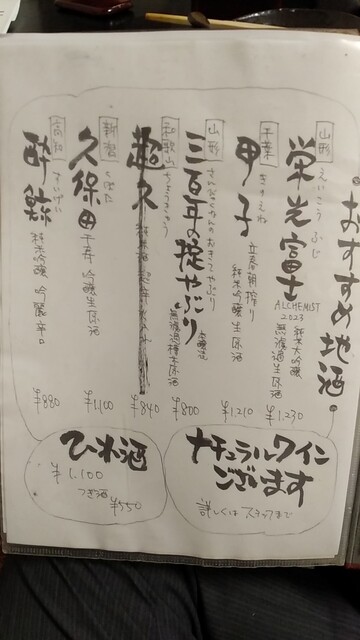 おすすめ地酒。
山形
えいこう ふじ
栄光冨士
ALCHEMIST
2023
純米大吟醸
無濾過生原酒
¥1,230
千葉
きのえね
甲子
立春朝搾り
純米吟醸生原酒
¥1,210
山形
さんびゃくねんのおきてやぶり
三百年の掟やぶり
本醸造
無濾過槽前原酒
¥800
和歌山
ちょうきゅう
超久
¥840
新潟
くぼた
久保田
千寿 吟醸生原酒
¥1,100
高知
すいげい
酔鯨
純米吟醸 吟麗 辛口
¥880
ナチュラルワイン
ございます
詳しくはスタッフまで
ひれ酒
¥1,100
つぎ酒
¥550